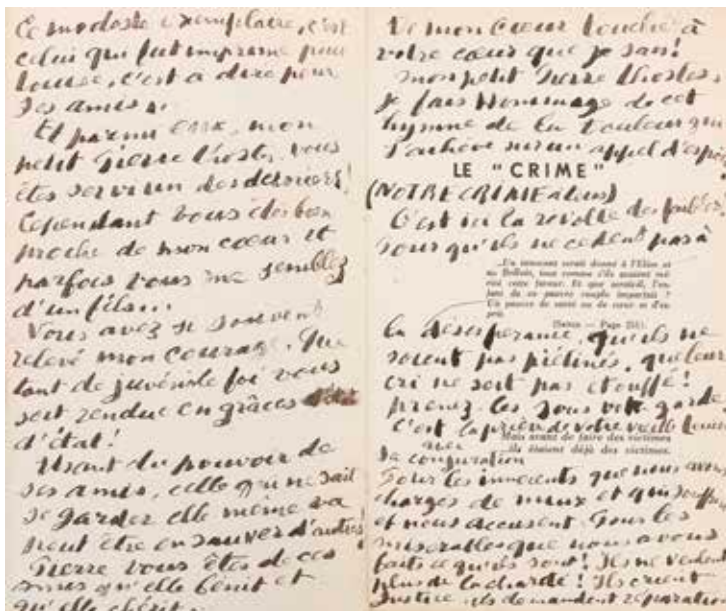 Ce modeste exemplaire, c'est
celui qui fut imprimé pour
Louise, c'est à dire pour
ses amis.
Et parmi eux, mon
petit Pierre Lhoste, vous
êtes servi un des derniers!
Cependant vous êtes bien
proche de mon cœur et
parfois vous me semblez
d'un fils...
Vous avez si souvent
relevé mon courage. Que
tant de juvénile foi vous
soit rendue en grâces
d'état!
Usant du pouvoir de
ses amis, celle qui ne sait
se garder elle même va
peut être en sauver d'autres!
Pierre vous êtes de ces
amis qu'elle bénit et
qu'elle chérit.
De mon cœur touché à
votre cœur que je sais!
mon petit Pierre Lhoste,
je fais Hommage de cet
hymne de la Douleur qui
s'achève sur un appel d'espoir
LE "CRIME"
(NOTRE CRIME alors)
C'est ici la révolte des faibles
pour qu'ils ne cèdent pas à
...Un innocent serait donné à l'Elise et
au Bellois, tout comme s'ils avaient mé-
rité cette faveur. Et que serait-il, l'en-
fant de ce pauvre couple imparfait ?
Un pauvre de santé ou de cœur et d'es-
prit.
la désespérance, qu'ils ne
soient pas piétinés, que leur
cri ne soit pas étouffé!
prenez-les sous votre garde
c'est la prière de votre vieille Louise
Mais avant de faire des victimes
ils étaient déjà des victimes.
sa conjuration
Pour les innocents que nous avons
chargés de maux et qui souffrent
et nous accusent. Pour les
misérables que nous avons
faits ce qu'ils sont! Ils ne veulent
plus de la charité! Ils crient
Justice ils demandent réparation